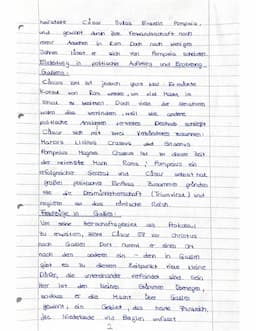 heiratete Cäsar Sullas Enkelin Pompeia,
und gewann durch ihre Verwandtschaft noch
mehr Ansehen in Rom. Doch nach wenigen
Jahren lässt er sich von Pompeia scheiden.
Einstieg in politischer Aufstieg und Eroberung
Galliens:
Cäsars Ziel ist jedoch ganz klar: Er möchte
Konsul von Rom werden, um viel Macht im
Senat zu besitzen. Doch viele der Senatoren
wollen das verhindern, weil sie andere
politische Ansichten vertreten. Deshalb schließt
Cäsar sich mit zwei Verbündeten zusammen:
Marcus Licinius Crassus und Gnaeus
Pompeius Magnus. Crassus ist zu dieser Zeit
der reichste Mann Roms, Pompeius ein
erfolgreicher General und Cäsar selbst hat
großen politischen Einfluss. Zusammen gründen
sie die Dreimännerherrschaft (Triumvirat) und
regieren so das römische Reich.
Feldzüge in Gallien:
Um seine Herrschaftsgebiet als Prokonsul
zu erweitern, reist Cäsar 58 vor Christus
nach Gallien. Dort nimmt er einen Ort
nach den anderen ein - denn in Gallien
gibt es zu diesem Zeitpunkt viele kleine
Dörfer, die untereinander verfeindet sind. Sein
Heer ist den kleinen Stämmen überlegen,
sodass er die Macht über Gallien
gewinnt, ein Gebiet, das heute Frankreich,
die Niederlande und Belgien umfasst.
2